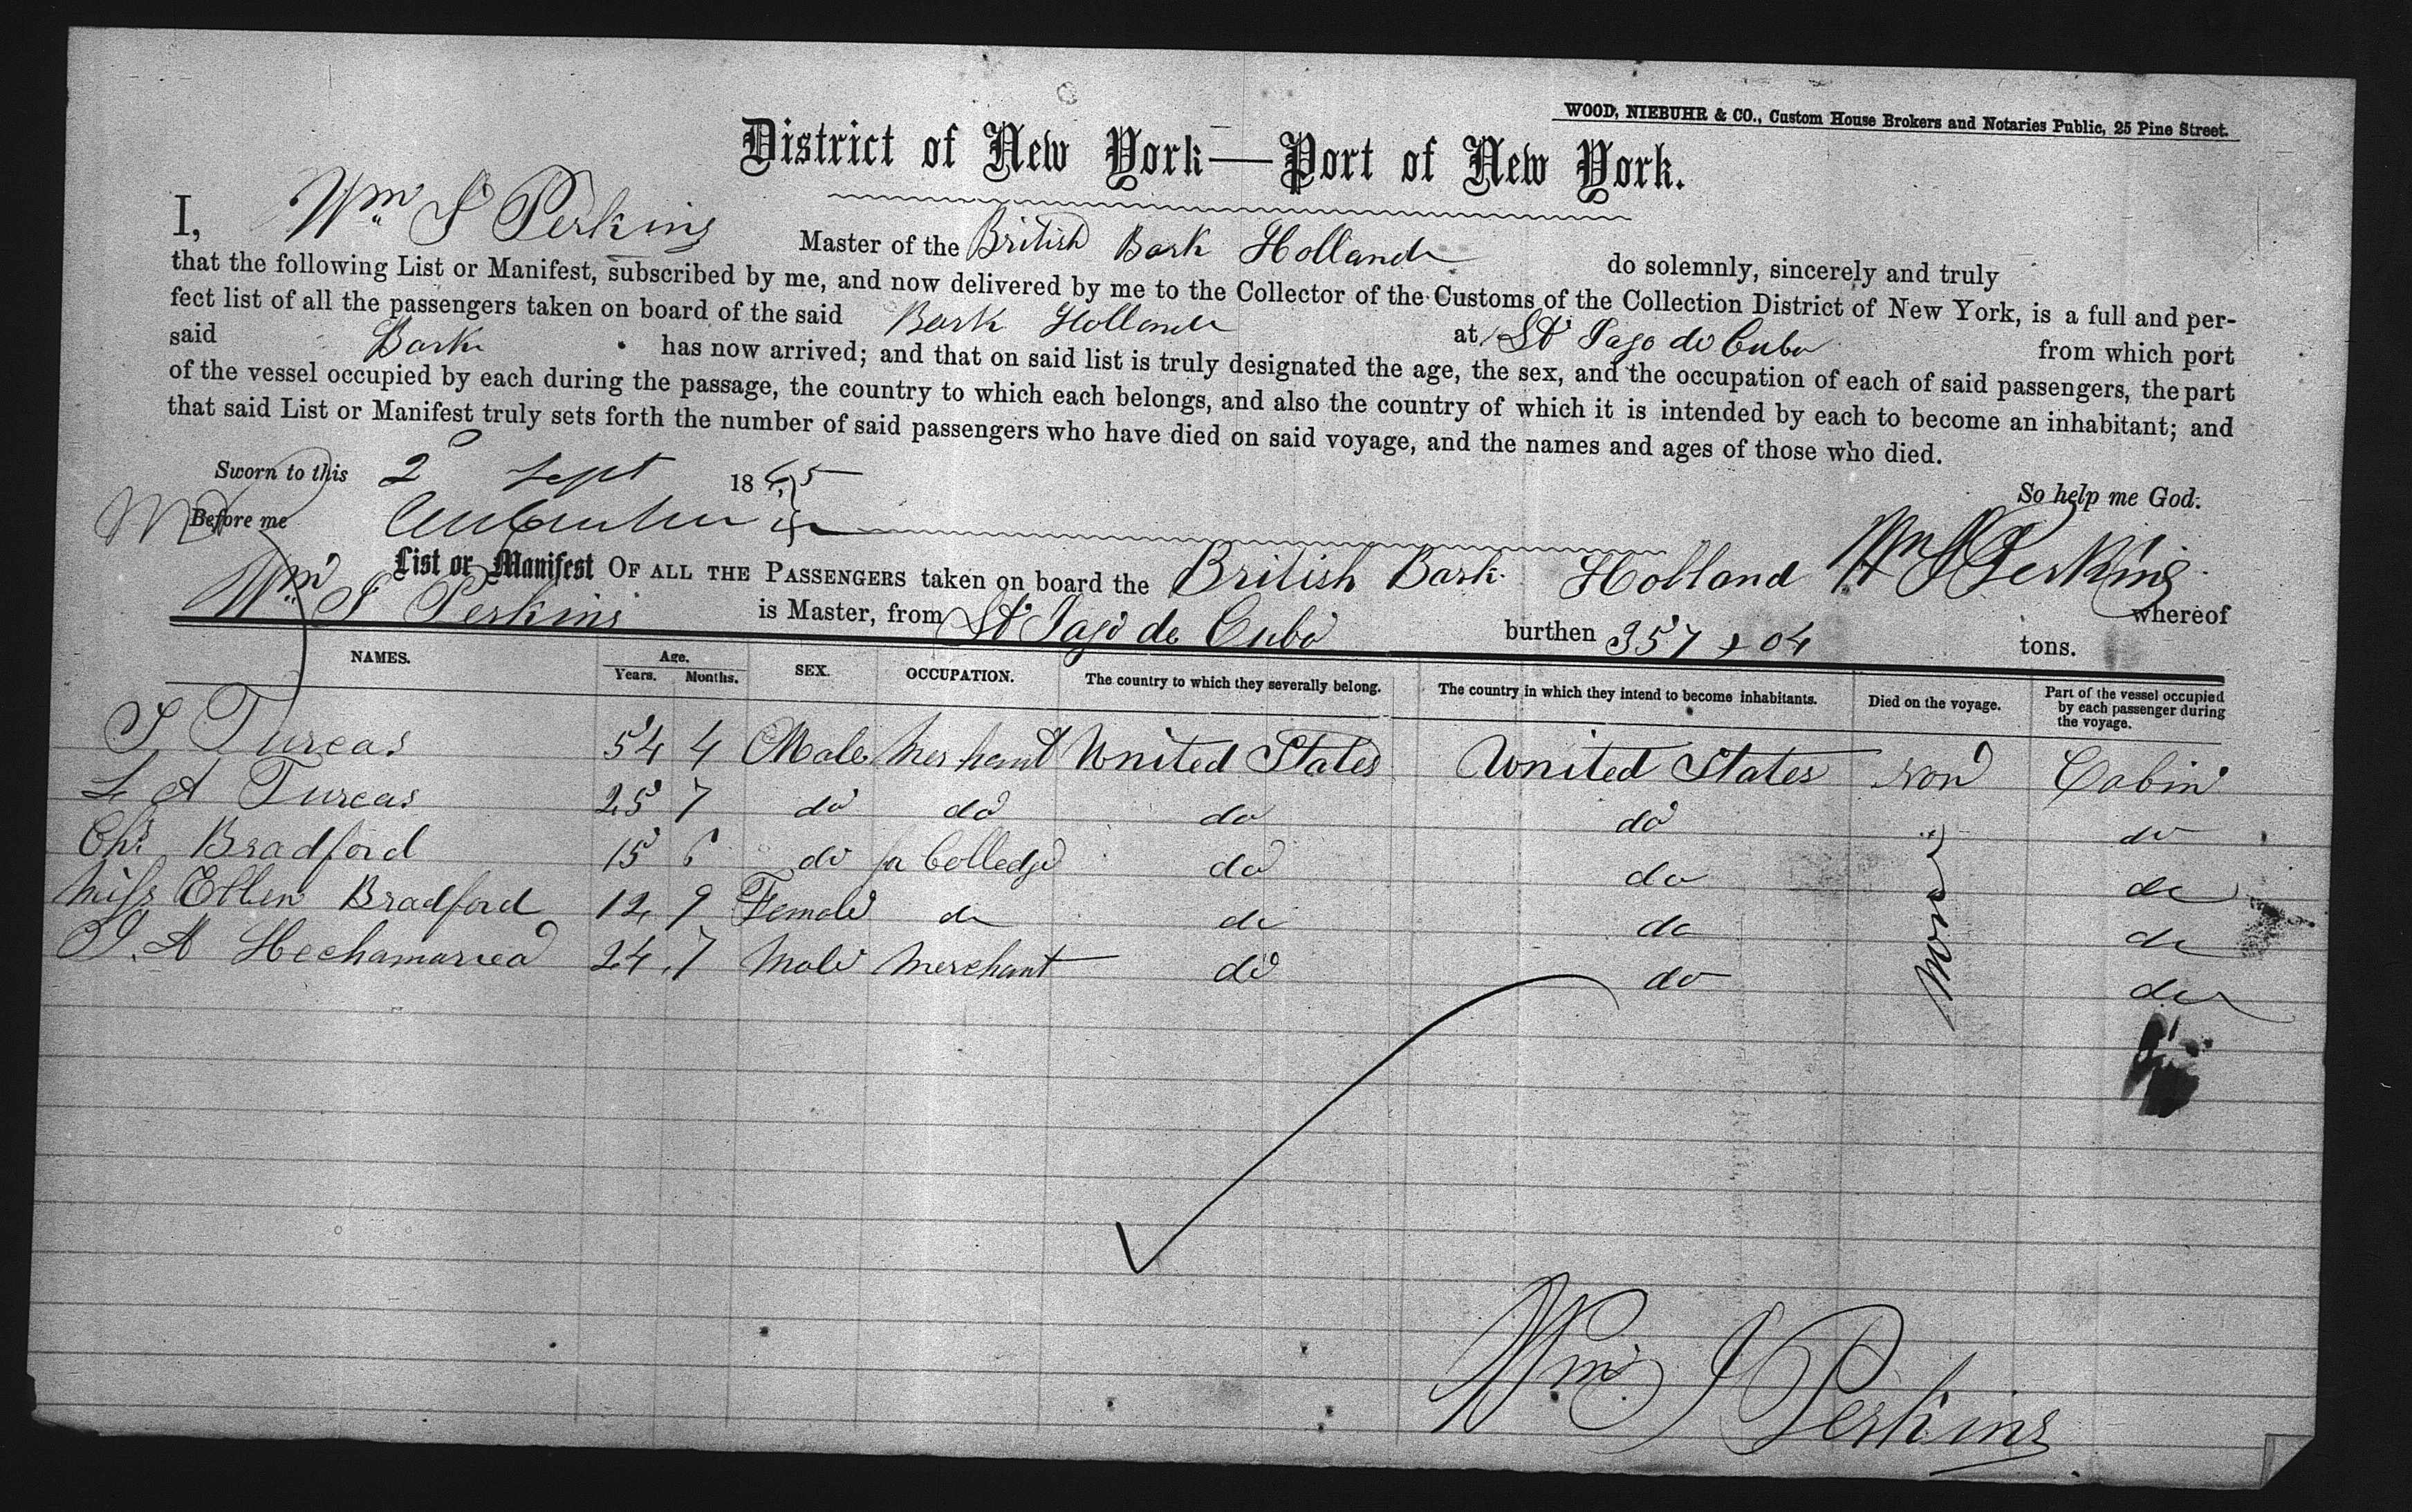 WOOD, NIEBUHR & CO., Custom House Brokers and Notaries Public, 25 Pine Street.
District of New York—Port of New York.
I, Wm S Perkins Master of the British Bark Holland do solemnly, sincerely and truly
that the following List or Manifest, subscribed by me, and now delivered by me to the Collector of the Customs of the Collection District of New York, is a full and per-
fect list of all the passengers taken on board of the said Bark Holland at St Jago de Cuba from which port
said Bark has now arrived; and that on said list is truly designated the age, the sex, and the occupation of each of said passengers, the part
of the vessel occupied by each during the passage, the country to which each belongs, and also the country of which it is intended by each to become an inhabitant; and
that said List or Manifest truly sets forth the number of said passengers who have died on said voyage, and the names and ages of those who died.
Sworn to this 2 Sept 1865 So help me God.
Before me
Wm S Perkins
List or Manifest OF ALL THE PASSENGERS taken on board the British Bark Holland whereof
Wm S Perkins is Master, from St Jago de Cuba burthen 357 04 tons.
NAMES. Age. Years. Months. SEX. OCCUPATION. The country to which they severally belong. The country in which they intend to become inhabitants. Died on the voyage. Part of the vessel occupied by each passenger during the voyage.
Turcas 54 4 Male Merchant United States United States Non Cabin
L A Turcas 25 7 do do do do do
Chs Bradford 15 6 do Colledge do do do
Miss Ellen Bradford 12 9 Female do do do do
J. A 24 7 Male Merchant do do do
Wm S Perkins